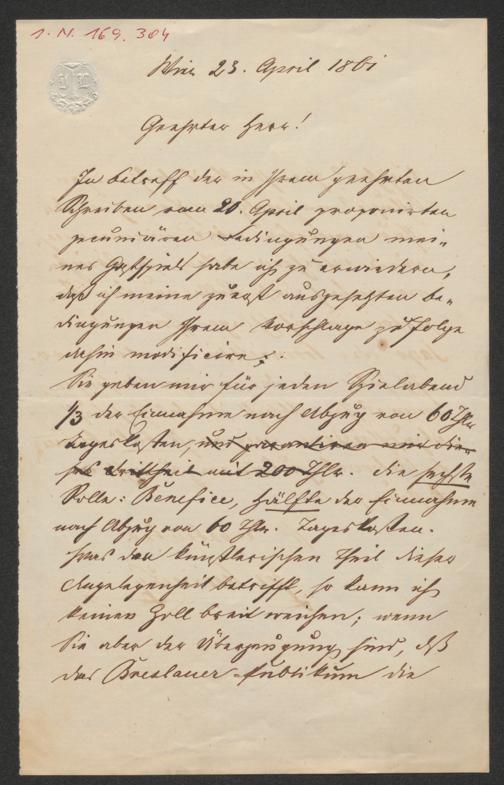 I. N. 169.304
Wien 23. April 1861
Geehrter Herr!
In betreff der in Ihrem geehrten
Schreiben vom 20. April proponirten
pecuniären Bedingungen mei-
nes Gastspiels habe ich zu erwiedern,
daß ich meine zuerst ausgesetzten Be-
dingungen Ihrem Vorschlage zufolge
dahin modificire:
Sie geben mir für jeden Spielabend
1/3 der Einnahme nach Abzug von 60 Thlr
Tageskosten, und garantiren mir die-
ses Drittheil mit 200 Thlr. die sechste
Rolle: Benefice, Hälfte der Einnahme
nach Abzug von 60 Thlr. Tageskosten.
Was den künstlerischen Theil dieser
Angelegenheit betrifft, so kann ich
keinen Zoll breit weichen; wenn
Sie aber der Überzeugung sind, daß
das Breslauer-Publikum die